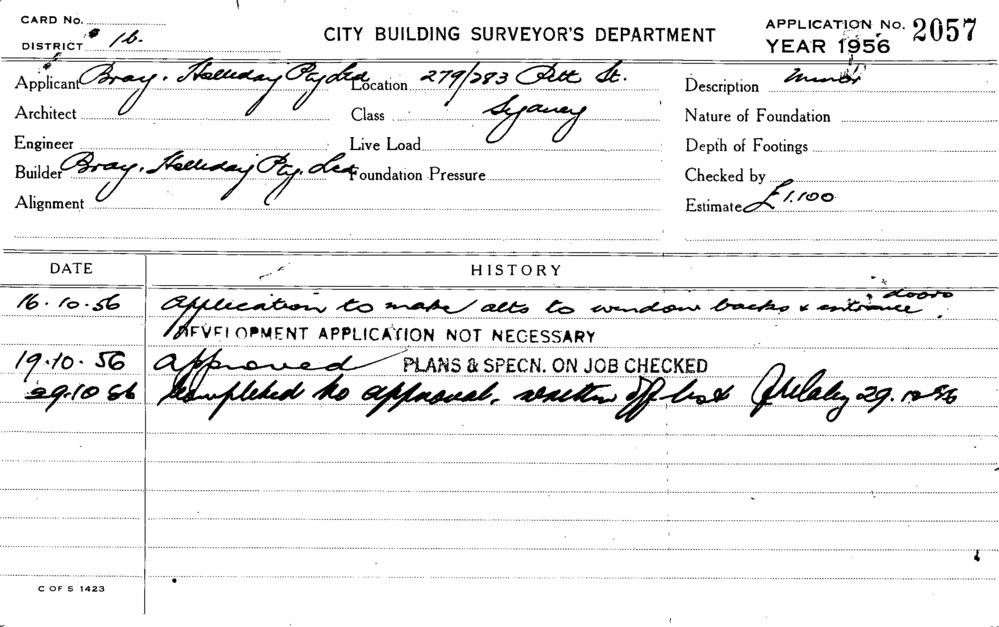 CARD No.
DISTRICT 16.
CITY BUILDING SURVEYOR'S DEPARTMENT
APPLICATION No. 2057
YEAR 1956
Applicant Bray. Halliday Pty Ltd Location 279/283 Pitt St. Description Minor
Architect Class Sydney Nature of Foundation
Engineer Live Load Depth of Footings
Builder Bray. Halliday Pty. Ltd. Foundation Pressure Checked by
Alignment Estimate £1.100
DATE HISTORY
16.10.56 Application to make alts to window backs & entrance doors.
DEVELOPMENT APPLICATION NOT NECESSARY
19.10.56 Approved PLANS & SPECN. ON JOB CHECKED
29.10 56 Completed to approval. written off list 29.10.56
C OF S 1423